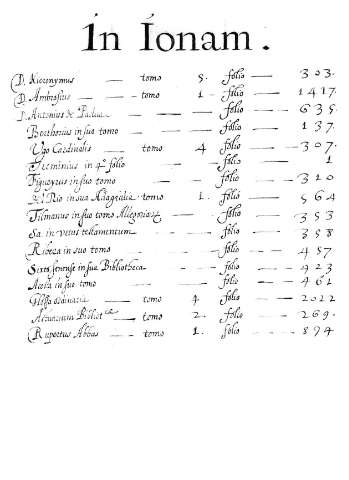 In Ionam.
D. Hieronymus — tomo 5. folio — 303.
D. Ambrosius — tomo 1. folio — 1417.
D. Antonius de Padua — folio — 635.
Boethosius in suo tomo — folio — 137.
Ugo Cardinalis — tomo 4 folio — 307.
in 4º folio — 1
Figueyrus in suo tomo — folio — 320
Del Rio in sua Adagialia tomo 1. folio — 564
Tilmanus in suo tomo Allegoriaru — folio — 353
Sa. in vetus testamentum — folio — 358
Ribera in suo tomo — folio — 457.
Sixtus senense in sua Bibliotheca — folio — 423
in suo tomo — folio — 461
Glossa ordinaria — tomo 4. folio — 2022
Bibliot — tomo 2. folio — 269.
Rupertus Abbas — tomo 1. folio — 894